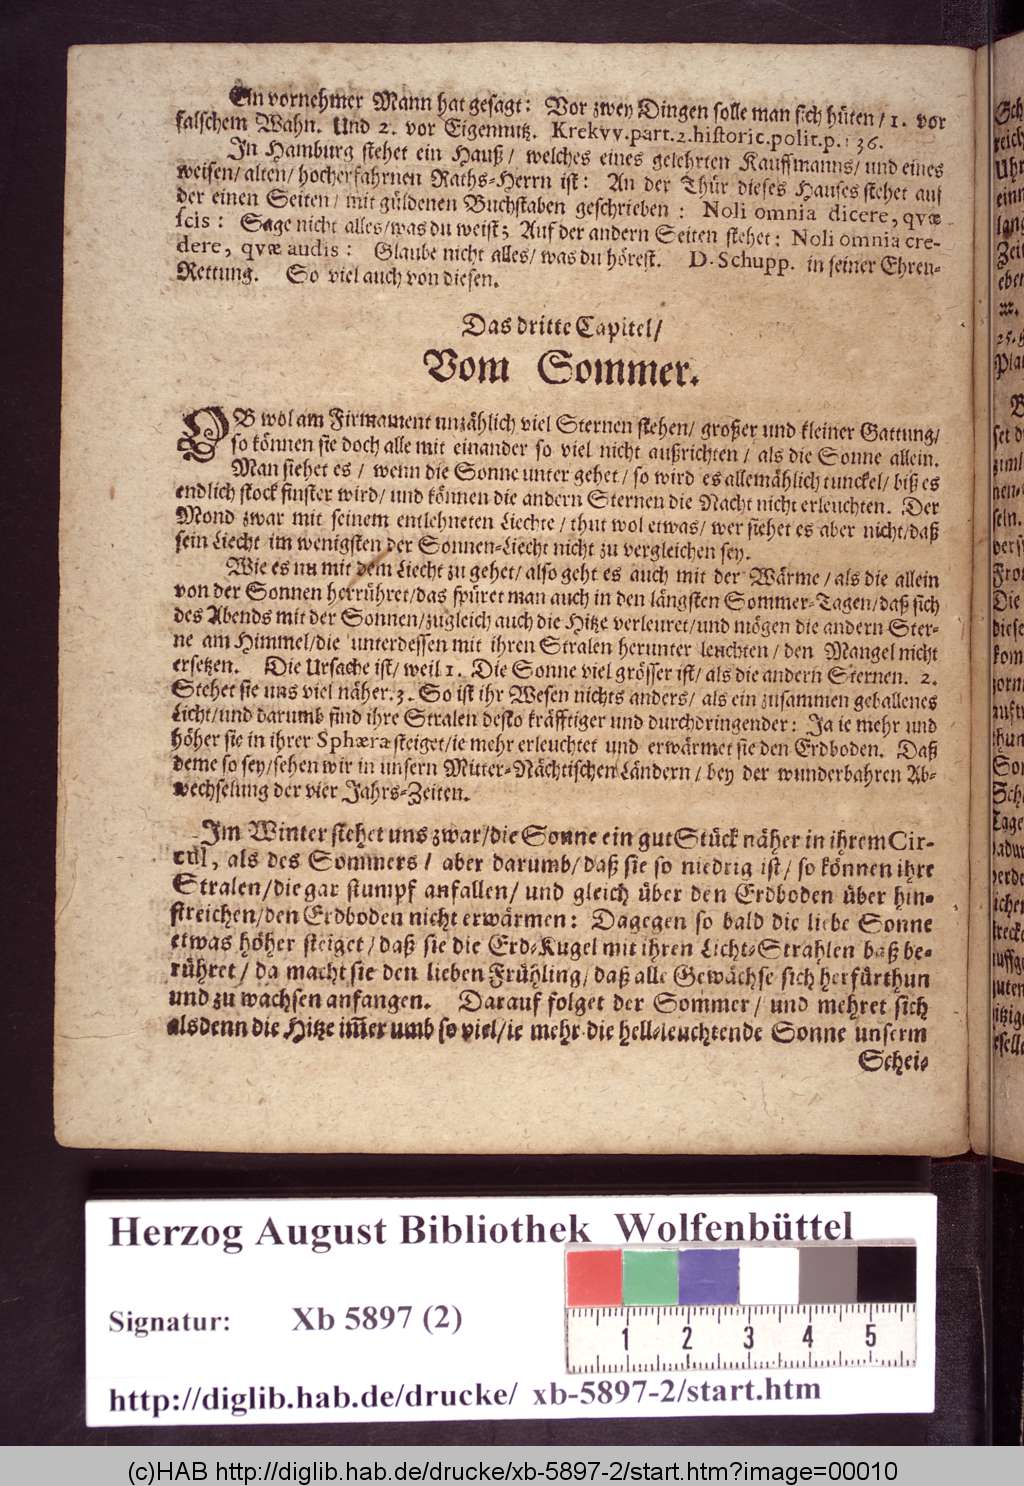 Ein vornehmer Mann hat gesagt: Vor zwey Dingen solle man sich hüten/ 1. vor
falschem Wahn. Und 2. vor Eigennutz. Krekvv.part.2.historic.polit.p.136.
In Hamburg stehet ein Hauß/ welches eines gelehrten Kauffmanns/ und eines
weisen/ alten/ hocherfahrnen Raths-Herrn ist: An der Thür dieses Hauses stehet auf
der einen Seiten/ mit güldenen Buchstaben geschrieben: Noli omnia dicere, qvæ
scis: Sage nicht alles/ was du weist; Auf der andern Seiten stehet: Noli omnia cre-
dere, qvæ audis: Glaube nicht alles/ was du hörest. D. Schupp. in seiner Ehren-
Rettung. So viel auch von diesen.
Das dritte Capitel/
Vom Sommer.
OB wol am Firmament unzählich viel Sternen stehen/ großer und kleiner Gattung/
so können sie doch alle mit einander so viel nicht außrichten/ als die Sonne allein.
Man siehet es/ wenn die Sonne unter gehet/ so wird es allemählich tunckel/ biß es
endlich stock finster wird/ und können die andern Sternen die Nacht nicht erleuchten. Der
Mond zwar mit seinem entlehneten Liechte/ thut wol etwas/ wer siehet es aber nicht/ daß
sein Liecht im wenigsten der Sonnen-Liecht nicht zu vergleichen sey.
Wie es nu mit dem Liecht zu gehet/ also geht es auch mit der Wärme/ als die allein
von der Sonnen herrühret/ das spüret man auch in den längsten Sommer-Tagen/ daß sich
des Abends mit der Sonnen/ zugleich auch die Hitze verleuret/ und mögen die andern Ster-
ne am Himmel/ die unterdessen mit ihren Stralen herunter leuchten/ den Mangel nicht
ersetzen. Die Ursache ist/ weil 1. Die Sonne viel grösser ist/ als die andern Sternen. 2.
Stehet sie uns viel näher. 3. So ist ihr Wesen nichts anders/ als ein zusammen geballenes
Licht/ und darumb sind ihre Stralen desto kräfftiger und durchdringender: Ja ie mehr und
höher sie in ihrer Sphæra steiget/ ie mehr erleuchtet und erwärmet sie den Erdboden. Daß
deme so sey/ sehen wir in unsern Mitter-Nächtischen Ländern/ bey der wunderbahren Ab-
wechselung der vier Jahrs-Zeiten.
Im Winter stehet uns zwar/ die Sonne ein gut Stück näher in ihrem Cir-
cul, als des Sommers/ aber darumb/ daß sie so niedrig ist/ so können ihre
Stralen/ die gar stumpf anfallen/ und gleich über den Erdboden über hin-
streichen/ den Erdboden nicht erwärmen: Dagegen so bald die liebe Sonne
etwas höher steiget/ daß sie die Erd-Kugel mit ihren Licht-Strahlen baß be-
rühret/ da macht sie den lieben Frühling/ daß alle Gewächse sich herfürthun
und zu wachsen anfangen. Darauf folget der Sommer/ und mehret sich
alsdenn die Hitze im̄er umb so viel/ ie mehr die hell-leuchtende Sonne unserm
Schei-
Herzog August Bibliothek Wolfenbüttel
Signatur: Xb 5897 (2)
1 2 3 4 5
http://diglib.hab.de/drucke/ xb-5897-2/start.htm
(c)HAB http://diglib.hab.de/drucke/xb-5897-2/start.htm?image=00010